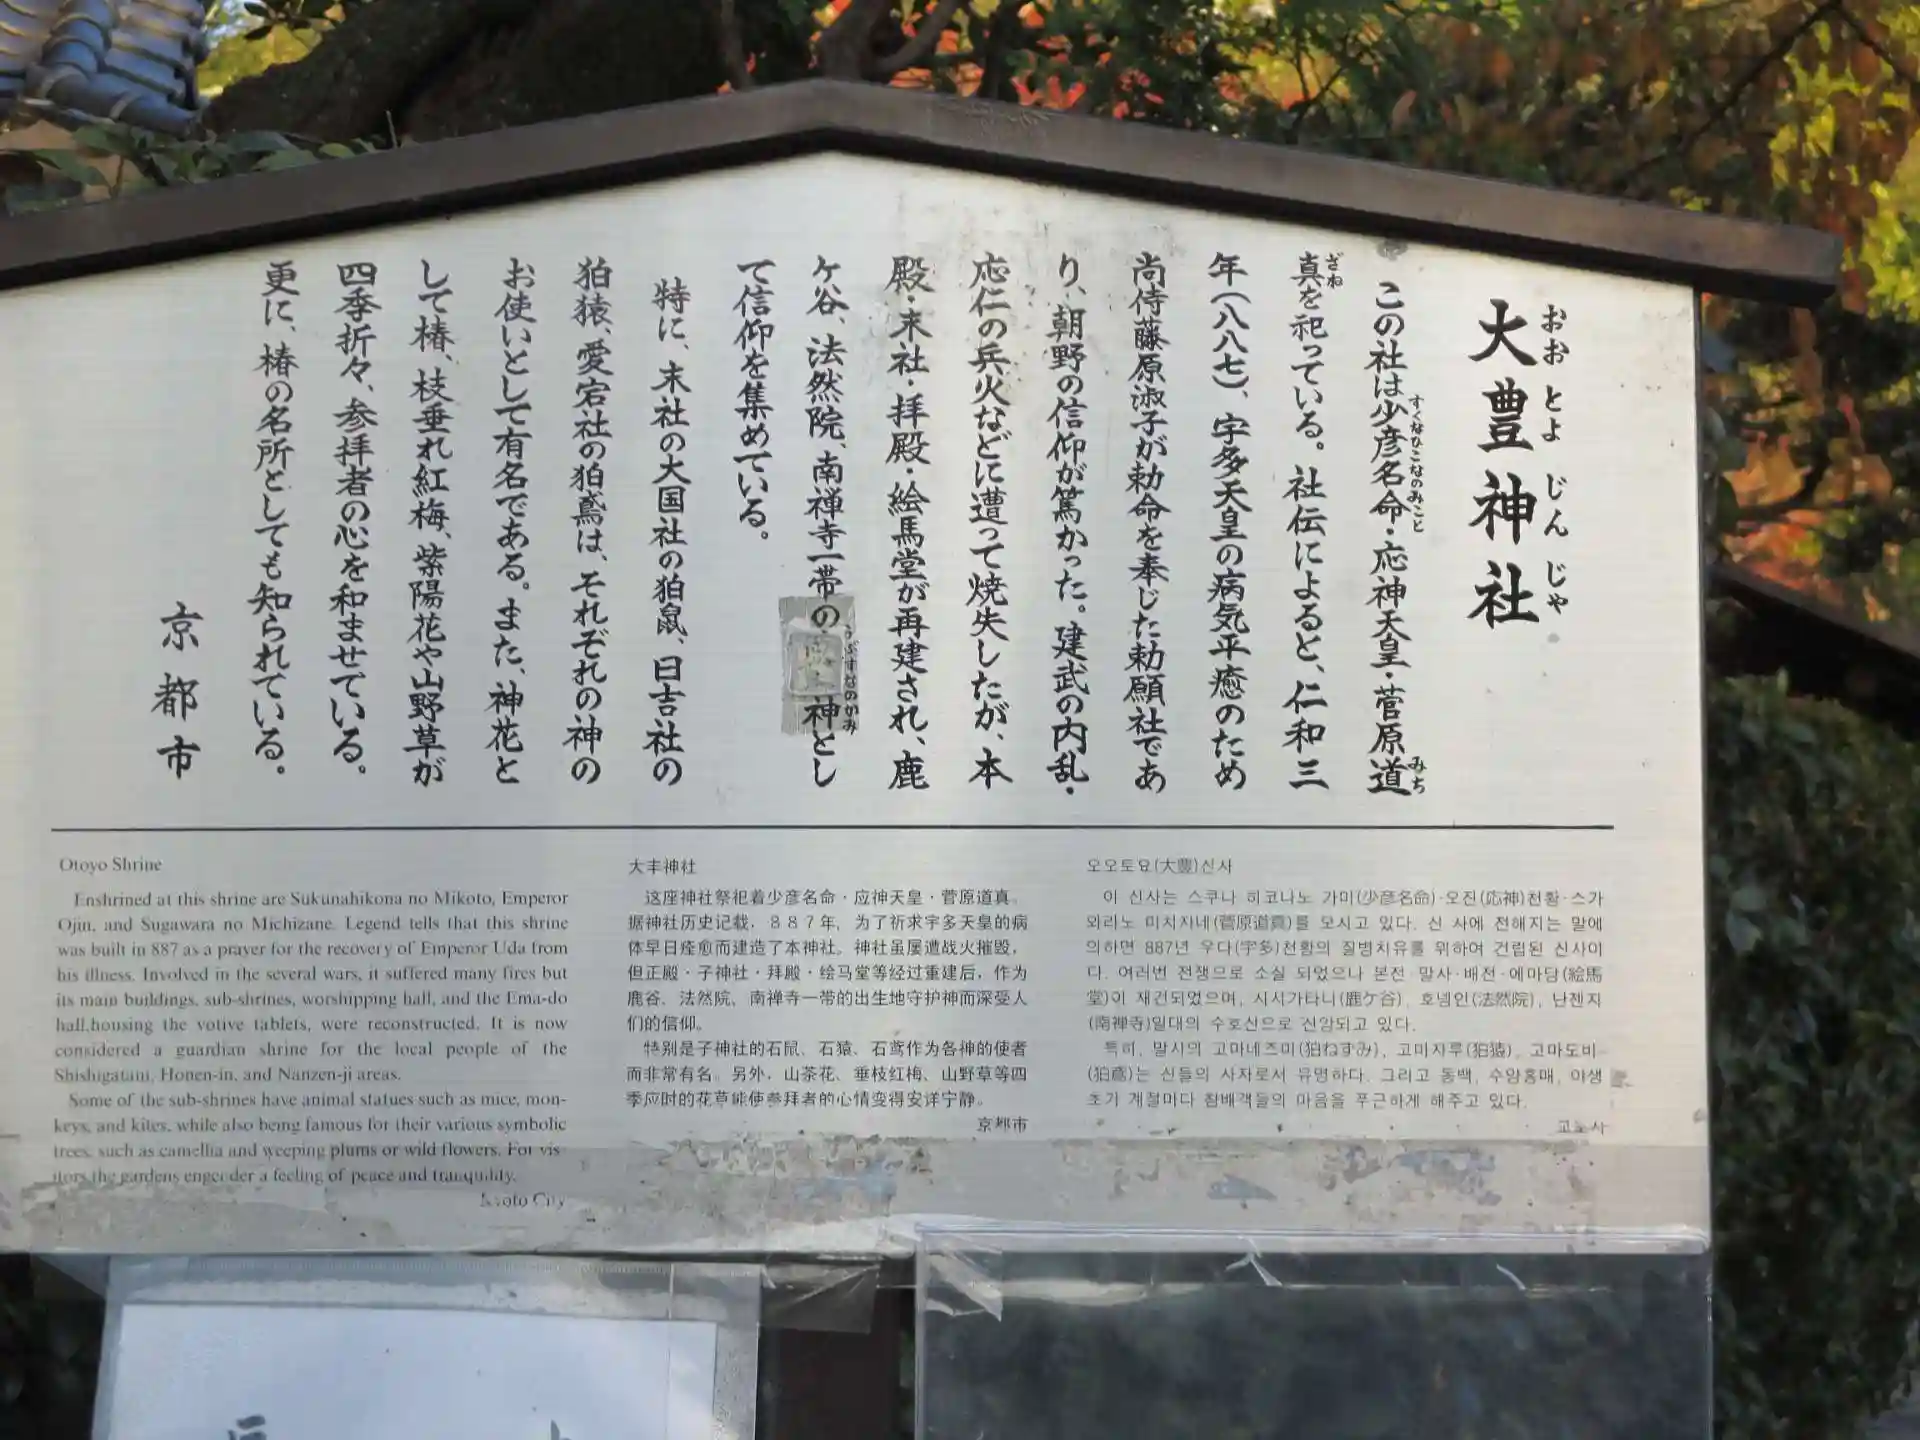 大豊神社
おおとよじんじゃ
この社は少彦名命・応神天皇・菅原道
すくなひこなのみこと
みち
真を祀っている。社伝によると、仁和三
ざね
年(八八七)、宇多天皇の病気平癒のため
尚侍藤原淑子が勅命を奉じた勅願社であ
り、朝野の信仰が篤かった。建武の内乱・
応仁の兵火などに遭って焼失したが、本
殿・末社・拝殿・絵馬堂が再建され、鹿
ヶ谷、法然院、南禅寺一帯の 神とし
うぶすなのかみ
て信仰を集めている。
特に、末社の大国社の狛鼠、日吉社の
狛猿、愛宕社の狛鳶は、それぞれの神の
お使いとして有名である。また、神花と
して椿、枝垂れ紅梅、紫陽花や山野草が
四季折々、参拝者の心を和ませている。
更に、椿の名所としても知られている。
京都市
Otoyo Shrine
Enshrined at this shrine are Sukunahikona no Mikoto, Emperor
Ojin, and Sugawara no Michizane. Legend tells that this shrine
was built in 887 as a prayer for the recovery of Emperor Uda from
his illness. Involved in the several wars, it suffered many fires but
its main buildings, sub-shrines, worshipping hall, and the Ema-do
hall,housing the votive tablets, were reconstructed. It is now
considered a guardian shrine for the local people of the
Shishigatani, Honen-in, and Nanzen-ji areas.
Some of the sub-shrines have animal statues such as mice, mon-
keys, and kites, while also being famous for their various symbolic
trees, such as camellia and weeping plums or wild flowers. For vis-
itors the gardens engender a feeling of peace and tranquility.
Kyoto City
大丰神社
这座神社祭祀着少彦名命・应神天皇・菅原道真。
据神社历史记载，８８７年，为了祈求宇多天皇的病
体早日痊愈而建造了本神社。神社虽屡遭战火摧毁，
但正殿・子神社・拜殿・绘马堂等经过重建后，作为
鹿谷、法然院、南禅寺一带的出生地守护神而深受人
们的信仰。
特别是子神社的石鼠、石猿、石鸢作为各神的使者
而非常有名。另外，山茶花、垂枝红梅、山野草等四
季应时的花草能使参拜者的心情变得安详宁静。
京都市
오오토요(大豊)신사
이 신사는 스쿠나 히코나노 가미(少彦名命)·오진(応神)천황·스가
와라노 미치자네(菅原道真)를 모시고 있다. 신 사에 전해지는 말에
의하면 887년 우다(宇多)천황의 질병치유를 위하여 건립된 신사이
다. 여러번 전쟁으로 소실 되었으나 본전·말사·배전·에마당(絵馬
堂)이 재건되었으며, 시시가타니(鹿ケ谷), 호넨인(法然院), 난젠지
(南禅寺)일대의 수호산으로 신앙되고 있다.
특히, 말시의 고마네즈미(狛ねずみ), 고미자루(狛猿), 고마도비
(狛鳶)는 신들의 사자로서 유명하다. 그리고 동백, 수양홍매, 야생
초가 계절마다 참배객들의 마음을 푸근하게 해주고 있다.